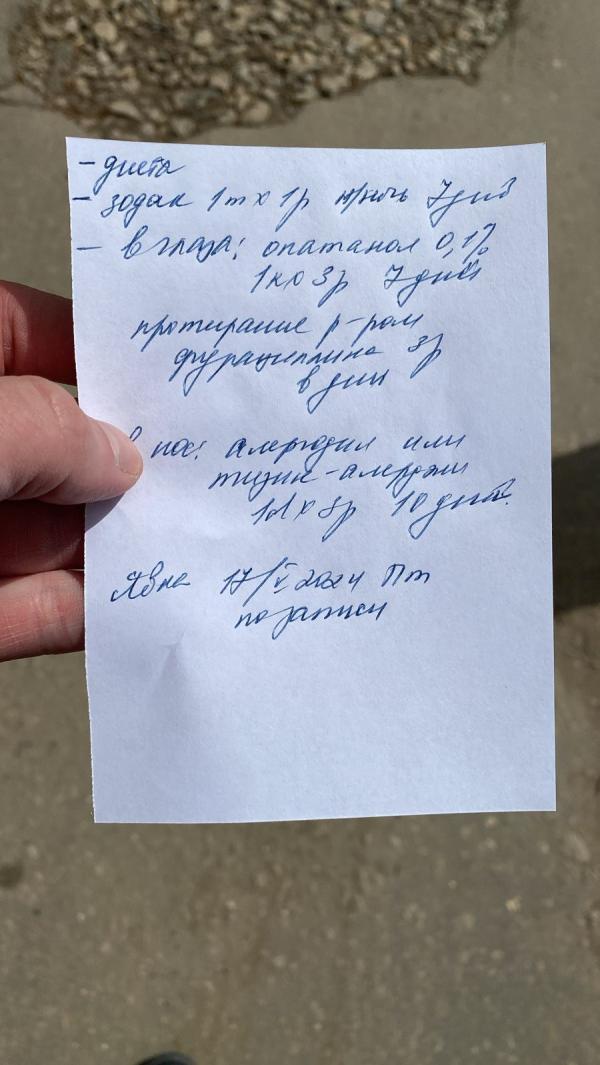 - диета
- зодак 1т х 1р н/ночь 7 дней
- в глаза: опатанол 0,1%
1к х 3р 7 дней
протирание р-ром
фурациллина 3р
в день
в нос: аллергодил или
тизин-алерджи
1д х 3р 10 дней.
Явка 17/V 2024 Пт
по записи